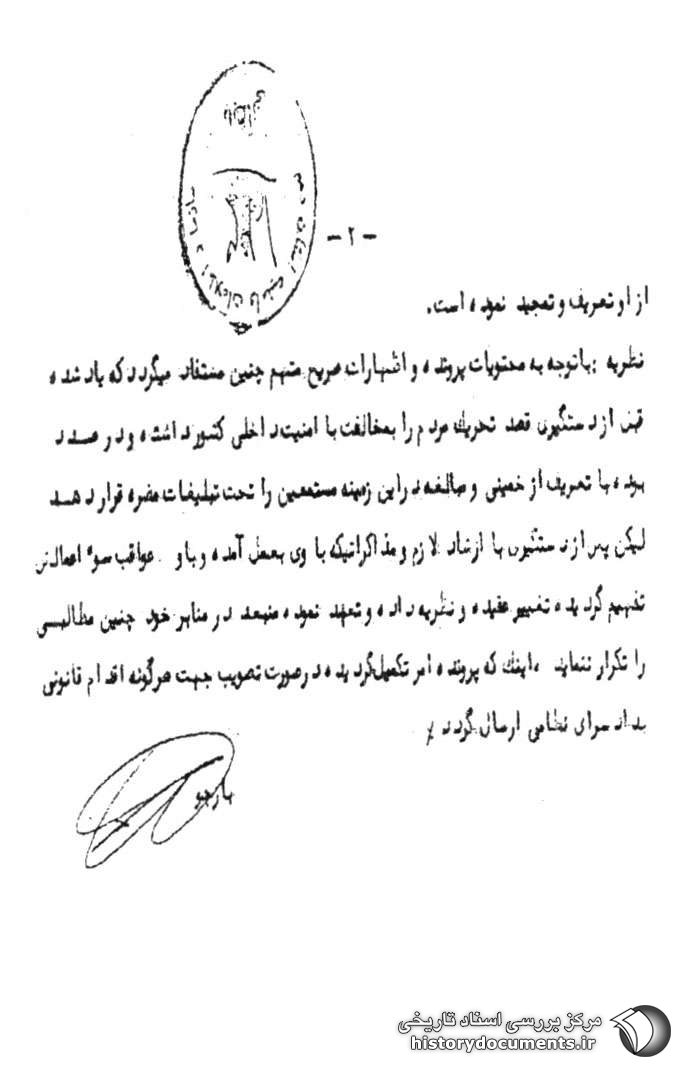 بایگانی
سازمان اطلاعات و امنیت کشور
- ۲ -
از او تعریف و تمجید نموده است.
نظریه : باتوجه به محتویات پرونده و اظهارات صریح متهم چنین مستفاد میگردد که یاد شده
قبل از دستگیری قصد تحریک مردم را بمخالفت با امنیت داخلی کشور داشته و در صدد
بوده با تعریف از خمینی و مبالغه در این زمینه مستمعین را تحت تبلیغات مضره قرار دهد
لیکن پس از دستگیری با ارشاد لازم و مذاکراتیکه با وی بعمل آمده و باو عواقب سوء اعمالش
تفهیم گردیده تغییر عقیده و نظریه داده و تعهد نموده منبعد در منابر خود چنین مطالبی
را تکرار ننماید ، اینک که پرونده امر تکمیل گردیده در صورت تصویب جهت هرگونه اقدام قانونی
بدادسرای نظامی ارسال گردد /
بازجو
مرکز بررسی اسناد تاریخی
historydocuments.ir